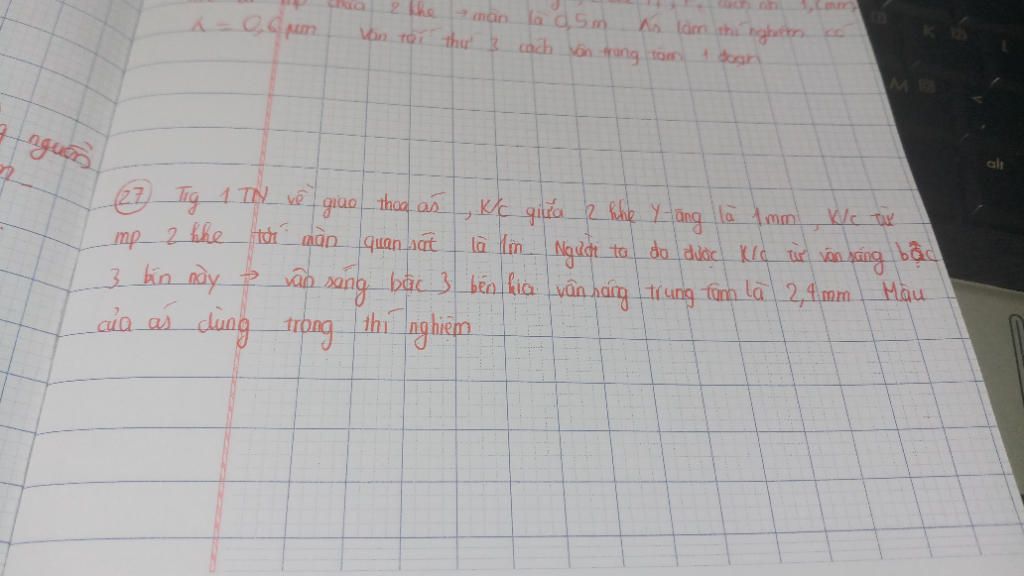 chứa 2 khe → màn là 0,5m As làm thí nghiệm có
λ = 0,6μm Vân tối thứ 3 cách vân trung tâm 1 đoạn
nguồn
27 Trg 1 TN về giao thoa as, K/c giữa 2 khe Y-âng là 1mm, K/c từ
mp 2 khe tới màn quan sát là 1m Người ta đo được K/c từ vân sáng bậc
3 bên này → vân sáng bậc 3 bên kia vân sáng trung tâm là 2,4mm Màu
của as dùng trong thí nghiệm
K L
M <
alt